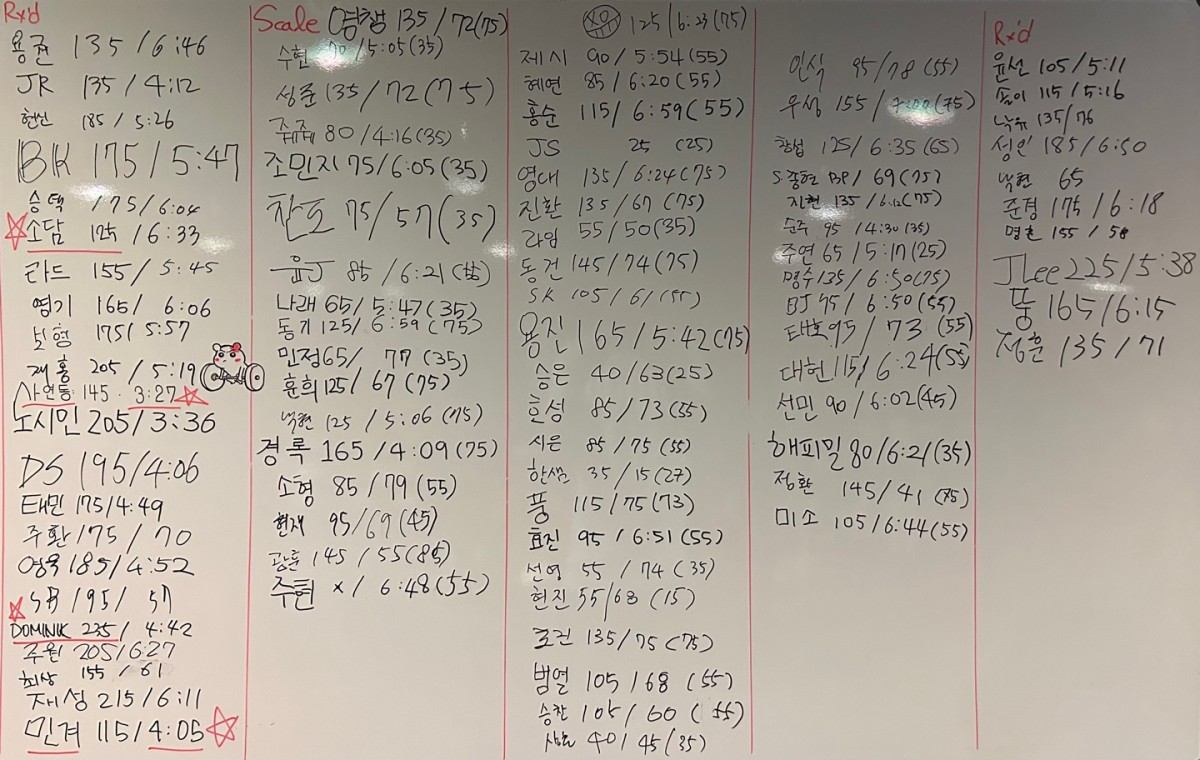 Rx'd
용권 135/6:46
JR 135/4:12
현빈 185/5:26
BK 175/5:47
승택 175/6:04
소담 125/6:33
타드 155/5:45
영기 165/6:06
보험 175/5:57
재홍 205/5:19
사연등 145 · 3:27
도시민 205/3:36
DS 195/4:06
태민 175/4:49
주환 175/70
영욱 185/4:52
SB 195/57
DOMINIK 235/4:42
주원 205/6:27
희상 155/61
재성 215/6:11
민겨 115/4:05
Scale 영쌤 135/72(75)
수현 70/5:05(35)
성준 135/72(75)
쥬쥬 80/4:16(35)
조민지 75/6:05(35)
찬도 75/57(35)
윤J 85/6:21
나래 65/5:47(35)
동기 125/6:59(75)
민정 65/77(35)
훈희 125/67(75)
낙현 125/5:06(75)
경록 165/4:09(75)
소형 85/79(55)
현재 95/69(45)
광훈 145/55(85)
주현 x/6:48(55)
125/6:23(75)
제시 90/5:54(55)
혜연 85/6:20(55)
홍순 115/6:59(55)
JS 25 (25)
영대 135/6:24(75)
진환 135/67(75)
라임 55/50(35)
동건 145/74(75)
SK 105/61(55)
용진 165/5:42(75)
승은 40/63(25)
효성 85/73(55)
시은 85/75(55)
한샘 35/15(27)
풍 115/75(73)
효진 95/6:51(55)
선영 55/74(35)
현진 55/68(15)
도건 135/75(75)
범열 105/68(55)
승찬 105/60(55)
40/45(35)
인식 95/78(55)
우성 155/7:00(75)
창섭 125/6:35(65)
S.중현 BP/69(75)
지현 135/6:12(75)
순수 95/4:30(35)
주연 65/5:17(25)
명수 135/6:50(75)
BJ 75/6:50(55)
태호 95/73(55)
대헌 115/6:24(55)
선민 90/6:02(45)
해피밀 80/6:21(35)
정환 145/41(75)
미소 105/6:44(55)
Rx'd
윤선 105/5:11
송이 115/5:16
낙유 135/76
성인 185/6:50
낙현 65
준경 175/6:18
명훈 155/58
JLee 225/5:38
풍 165/6:15
정훈 135/71